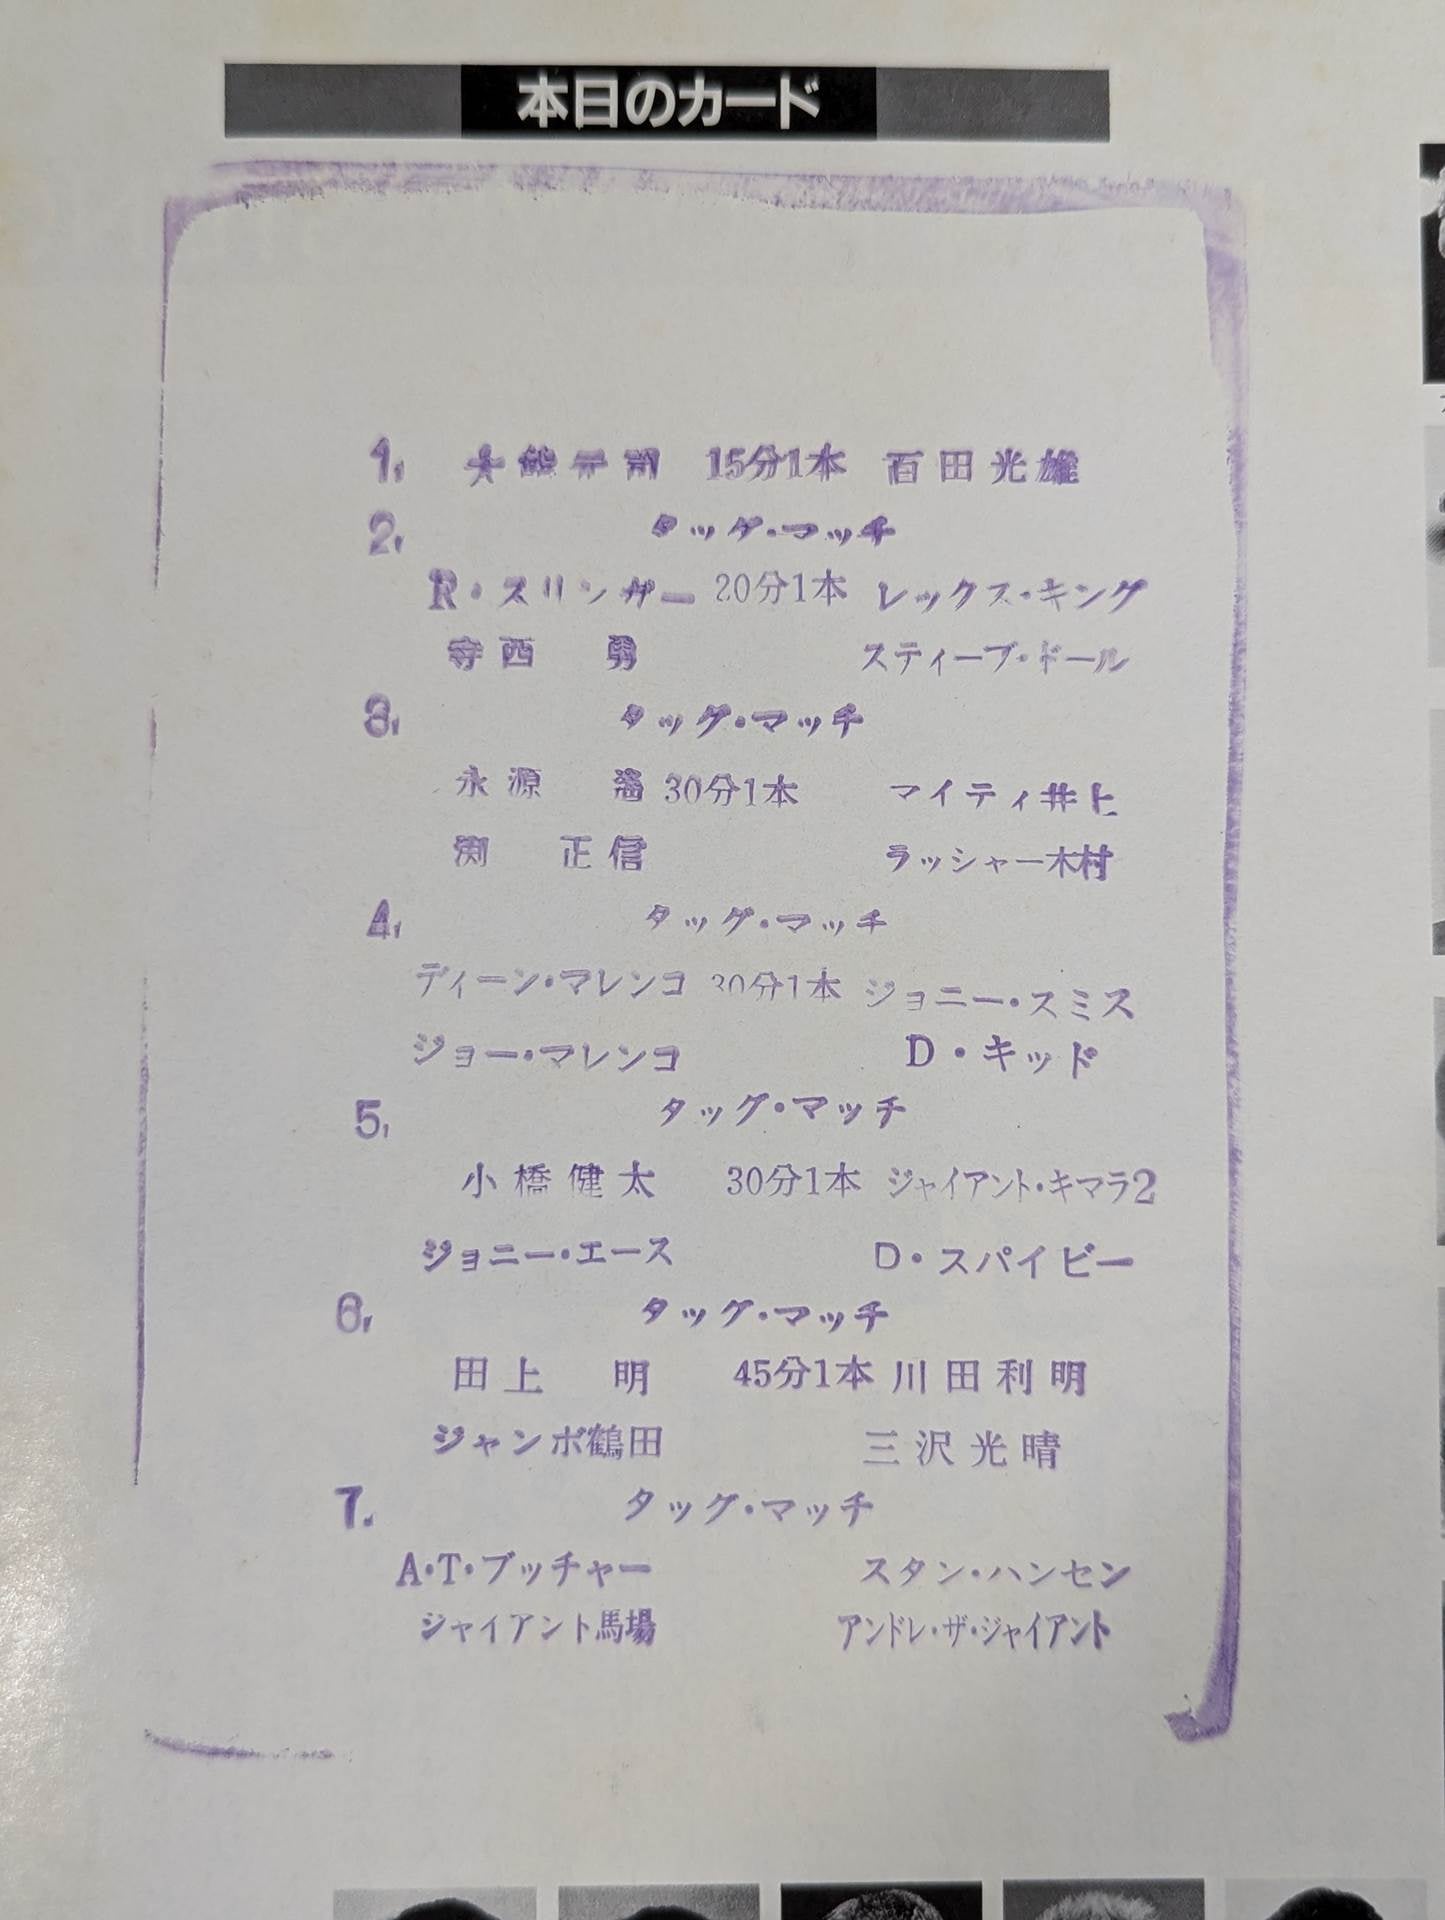 本日のカード
1. 大熊元司 15分1本 百田光雄
2. タッグ・マッチ
R・スリンガー 20分1本 レックス・キング
寺西 勇 スティーブ・ドール
3. タッグ・マッチ
永源 遙 30分1本 マイティ井上
渕 正信 ラッシャー木村
4. タッグ・マッチ
ディーン・マレンコ 30分1本 ジョニー・スミス
ジョー・マレンコ D・キッド
5. タッグ・マッチ
小橋健太 30分1本 ジャイアント・キマラ2
ジョニー・エース D・スパイビー
6. タッグ・マッチ
田上 明 45分1本 川田利明
ジャンボ鶴田 三沢光晴
7. タッグ・マッチ
A・T・ブッチャー スタン・ハンセン
ジャイアント馬場 アンドレ・ザ・ジャイアント